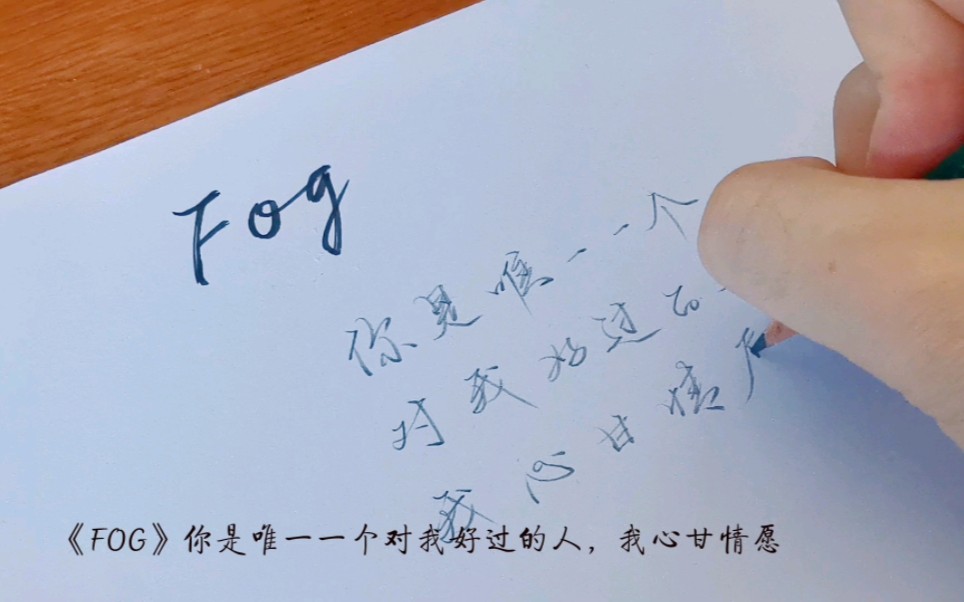 Fog
你是唯一一个
对我好过的
我心甘情
《FOG》你是唯一一个对我好过的人，我心甘情愿